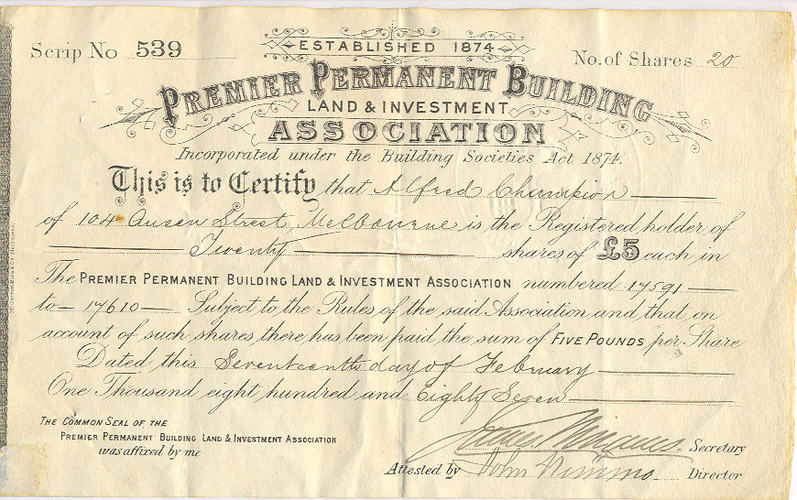 Scrip No 539
ESTABLISHED 1874
No. of Shares 20
PREMIER PERMANENT BUILDING
LAND & INVESTMENT
ASSOCIATION
Incorporated under the Building Societies Act 1874.
This is to Certify that Alfred Champion
of 104 Queen Street, Melbourne is the Registered holder of
Twenty shares of £5 each in
The PREMIER PERMANENT BUILDING LAND & INVESTMENT ASSOCIATION numbered 17591
to 17610 Subject to the Rules of the said Association and that on
account of such shares there has been paid the sum of FIVE POUNDS per Share
Dated this Seventeenth day of February
One Thousand eight hundred and Eighty Seven
THE COMMON SEAL OF THE
PREMIER PERMANENT BUILDING LAND & INVESTMENT ASSOCIATION
was affixed by me
James Secretary
Attested by John Nimmo Director